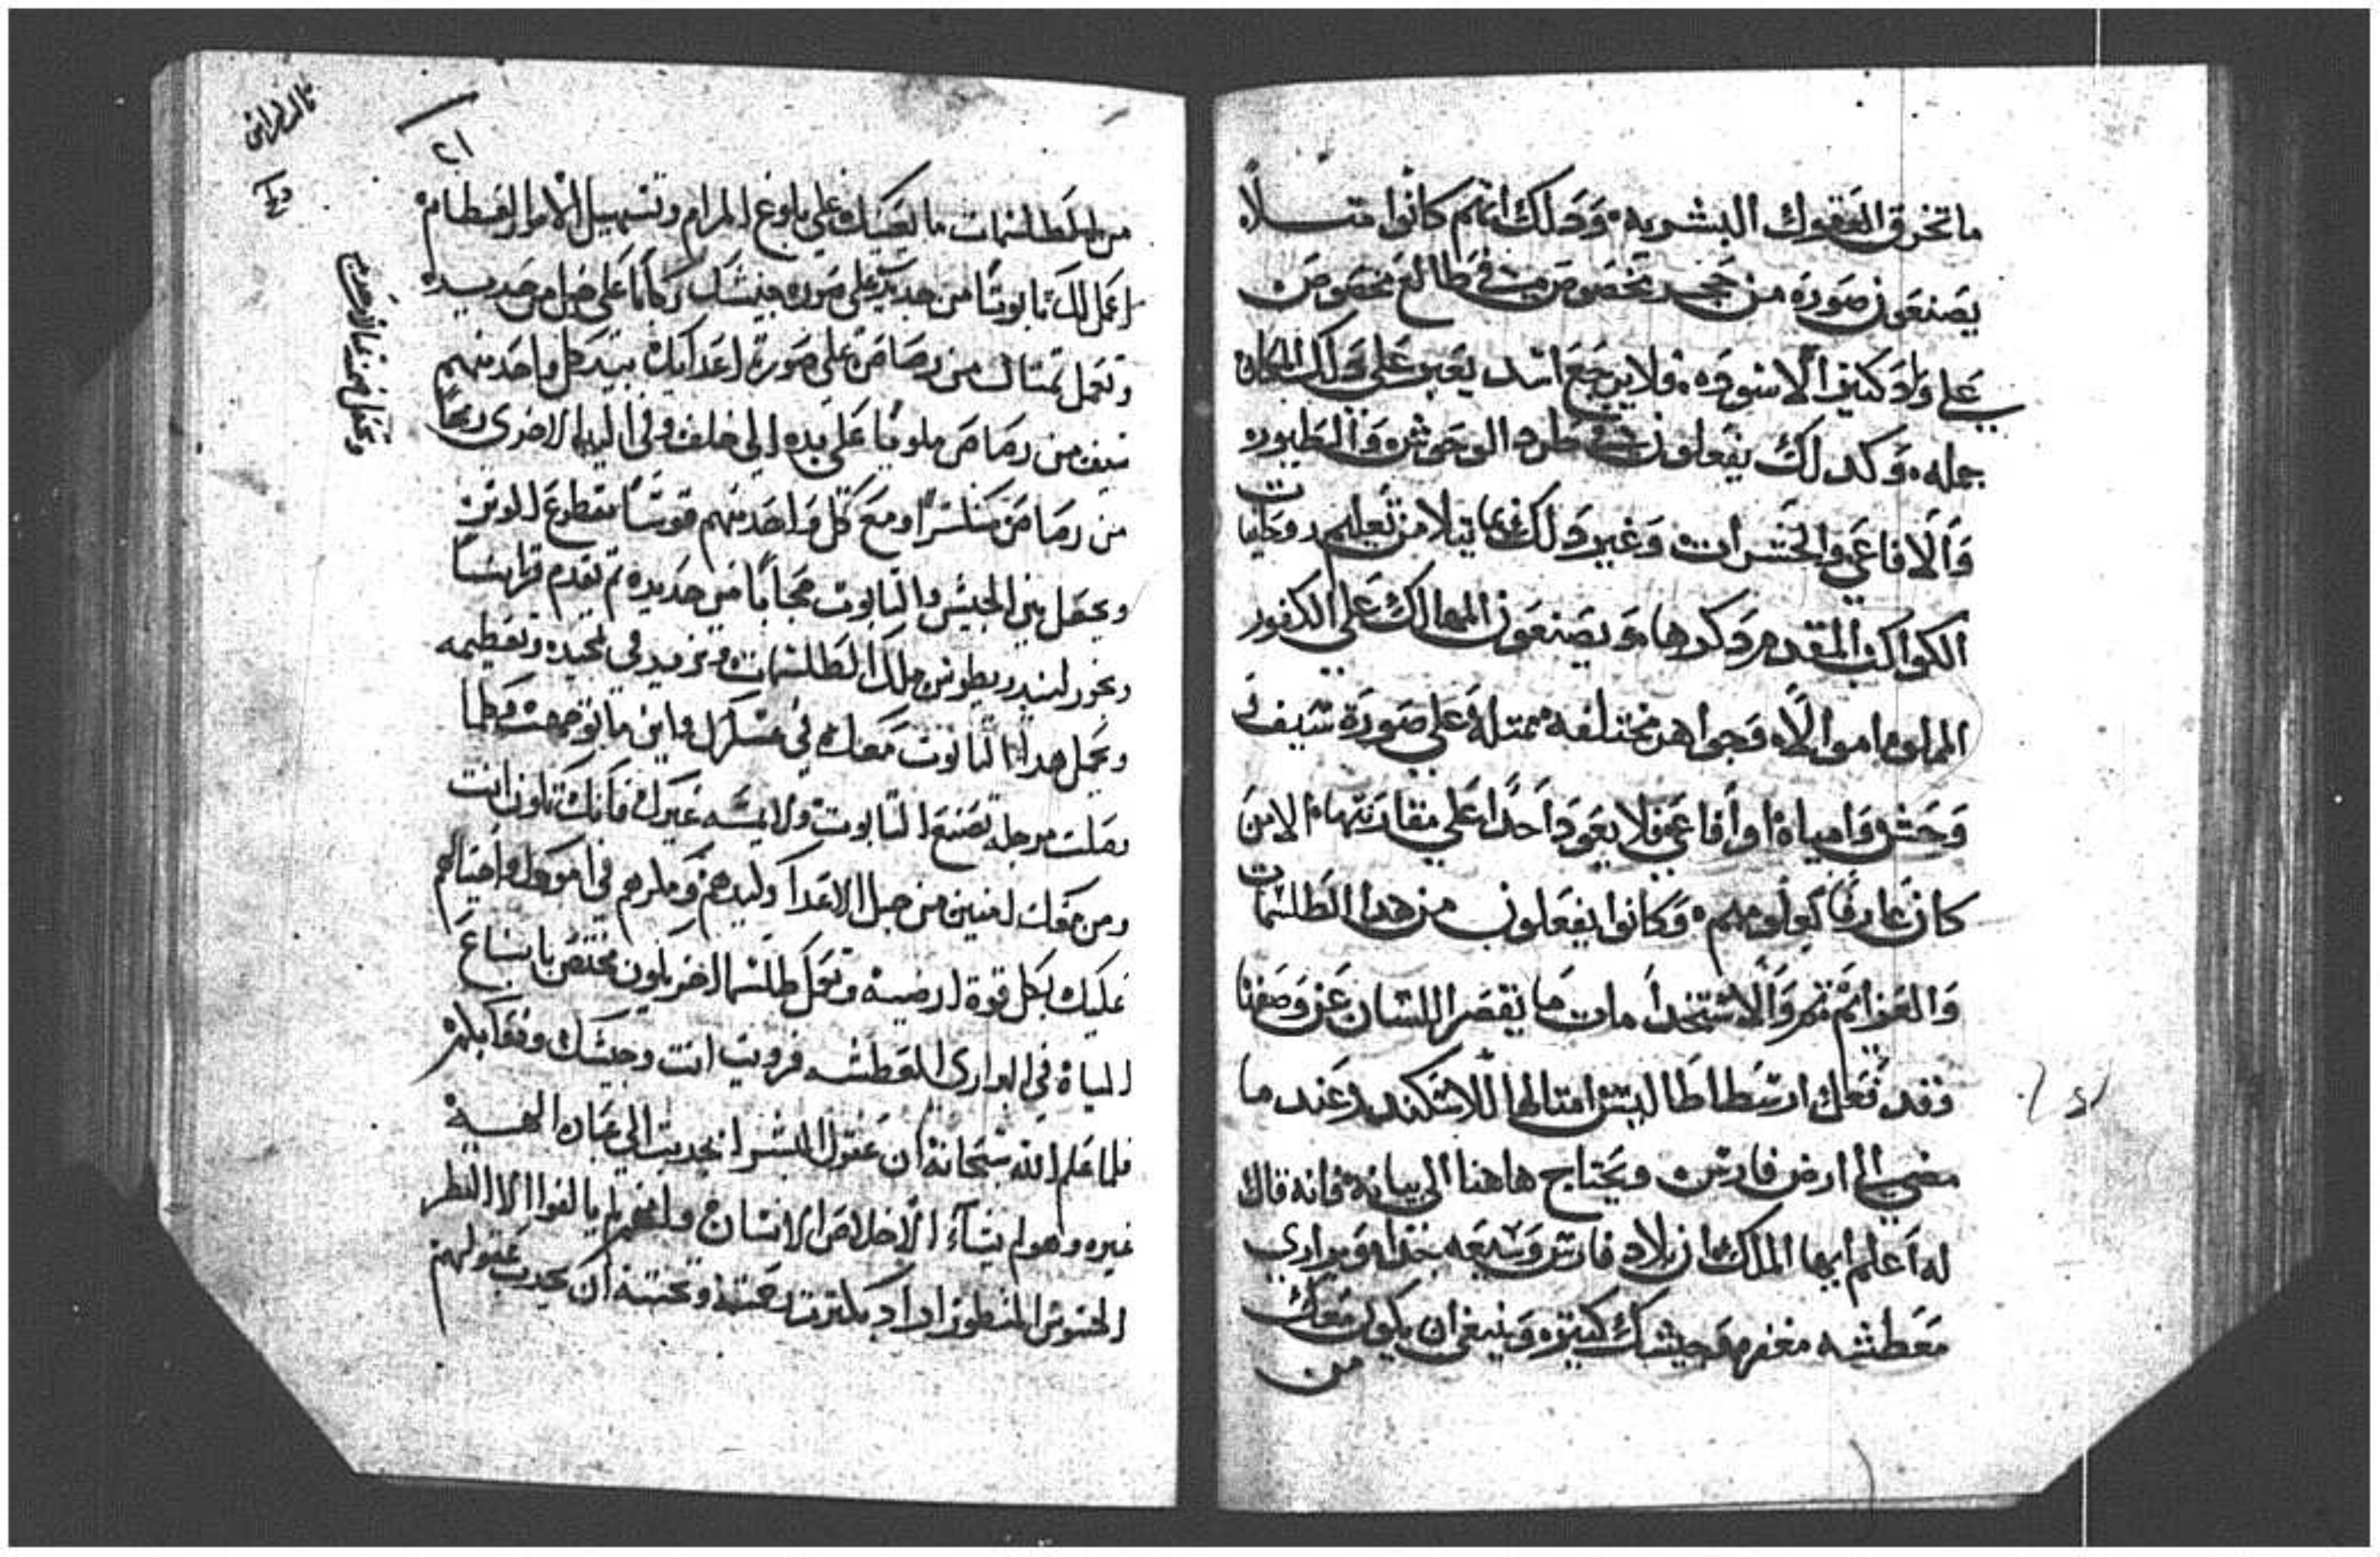 ما تخرق العقول البشريه وذلك انهم كانوا مثلاً
يصنعون صورة من حجر مخصوص في طالع مخصوص
على واد كثير الاسوده فلا يرجع اسد يعبر على ذلك المكان
جمله وكذلك يفعلون في طرد الوحوش والطيوره
والافاعي والحشرات وغير ذلك مما يتلا من تعليم روحانيات
الكواكب المقدم ذكرها ويصنعون المهالك على الكفور
المملوه اموالاً وجواهر مختلفه ممثلة على صورة سيف او
وحش او مياه او افاعي فلا يعود احداً على مقاربتها الا من
كان عارفاً بعلومهم وكانوا يفعلون من هدا الطلسمات
والعزائم والاستخدامات ما يقصر اللسان عن وصفنا
وقد فعل ارسطاطاليس امثالها للاسكندر عند ما
مضى الى ارض فارس ويحتاج هاهنا الى بيانه فانه قال
له اعلم ايها الملك ان بلاد فارس وسيعه جداً وبراري
معطشه مقفره وجيشك كثيره وينبغي ان يكون معك
من
من الطلسمات ما يعينك على بلوغ المرام وتسهيل الامور العظام
اعمل لك تابوتاً من حديد على صورة جيشك ركاباً على خيل من حديده
وتعمل تمثال من رصاص على صورة اعدايك بيد كل واحد منهم
سيف من رصاص ملوياً على يده الى خلف وفي اليد الاخرى رمحاً
من رصاص منكسراً ومع كل واحد منهم قوساً مقطوع الوتر
ويجعل بين الجيش والتابوت حجاباً من حديده ثم تقدم قرابيناً
وبخور لتلك الطلسمات وتزيد في تمجيده وتعظيمه
ويحمل هدا التابوت معك في عسكرك واين ما توجهت وكلما
نقلت مرحله تصنع التابوت ولا يمسه غيرك فانك تكون انت
ومن معك امنين من حيل الاعدا وكيدهم ومكرهم في امورك واحتيالهم
عليك بكل قوة ارضيه وتعمل طلسما اخر يكون مختص باتساع
المياه في البراري المعطشه فرويت انت وجيشك ودوابكم
فلما علم الله سبحانه ان عقول البشر انجدبت الى عبادة الهية
غيره وهو لم يشاء الا خلاص الانسان ولانهم لم يالفوا الا النظر
المحسوس المنظور اراد بكثرت رحمته ومحبته ان يجدب عقولهم